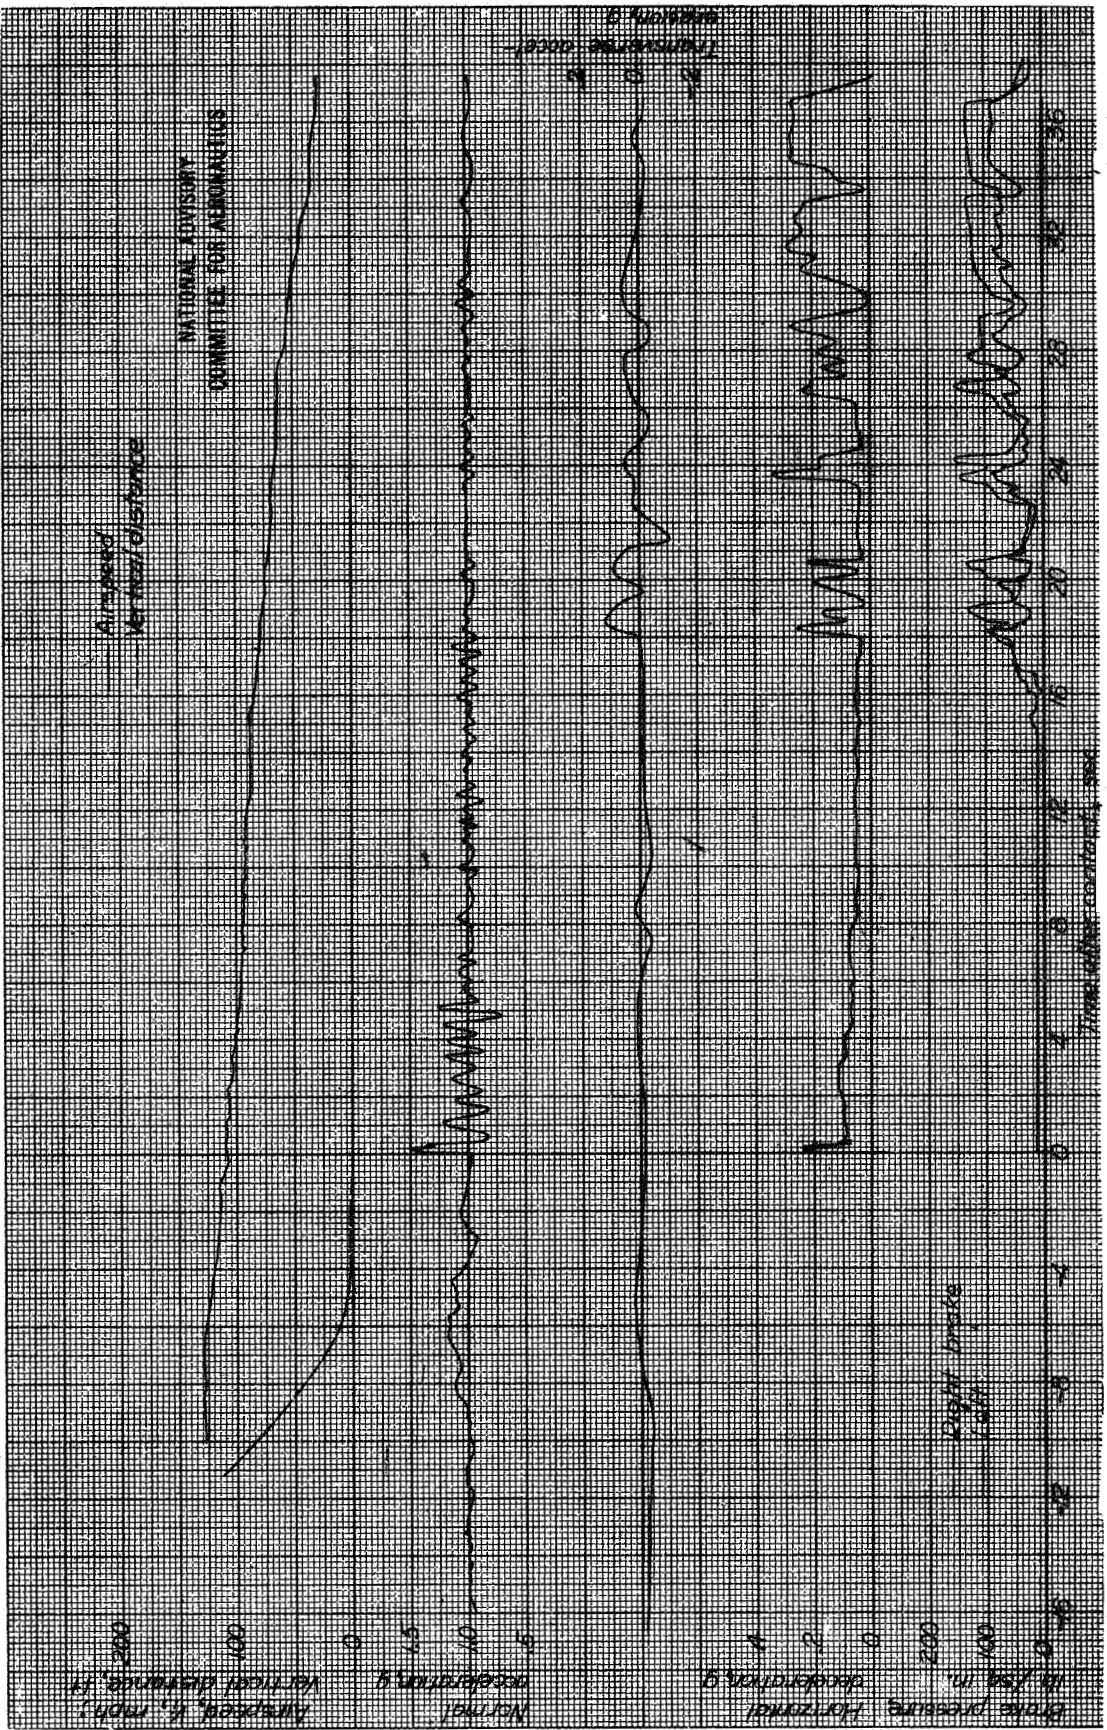 NATIONAL ADVISORY
COMMITTEE FOR AERONAUTICS
Airspeed
Vertical distance
Airspeed, V, mph;
Vertical distance, ft
200
100
0
Normal
acceleration, g
1.5
1.0
.5
Transverse accel-
eration, g
.2
0
-.2
Horizontal
deceleration, g
.4
.2
0
Brake pressure,
lb/sq in.
200
100
0
Right brake
Left
-16
-12
-8
-4
0
4
8
12
16
20
24
28
32
36
Time after contact, sec